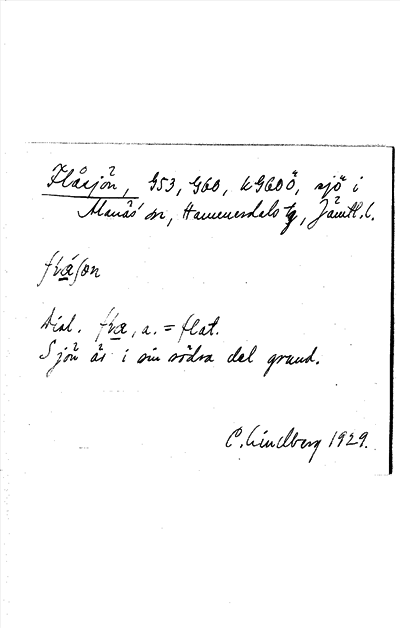 Flåsjön, G53, G60, kG60Ö, sjö i
Alanäs sn, Hammerdals tg, Jämtl. l.
Dial. a. = flat.
Sjön är i sin södra del grund.
C. Lindberg 1929.